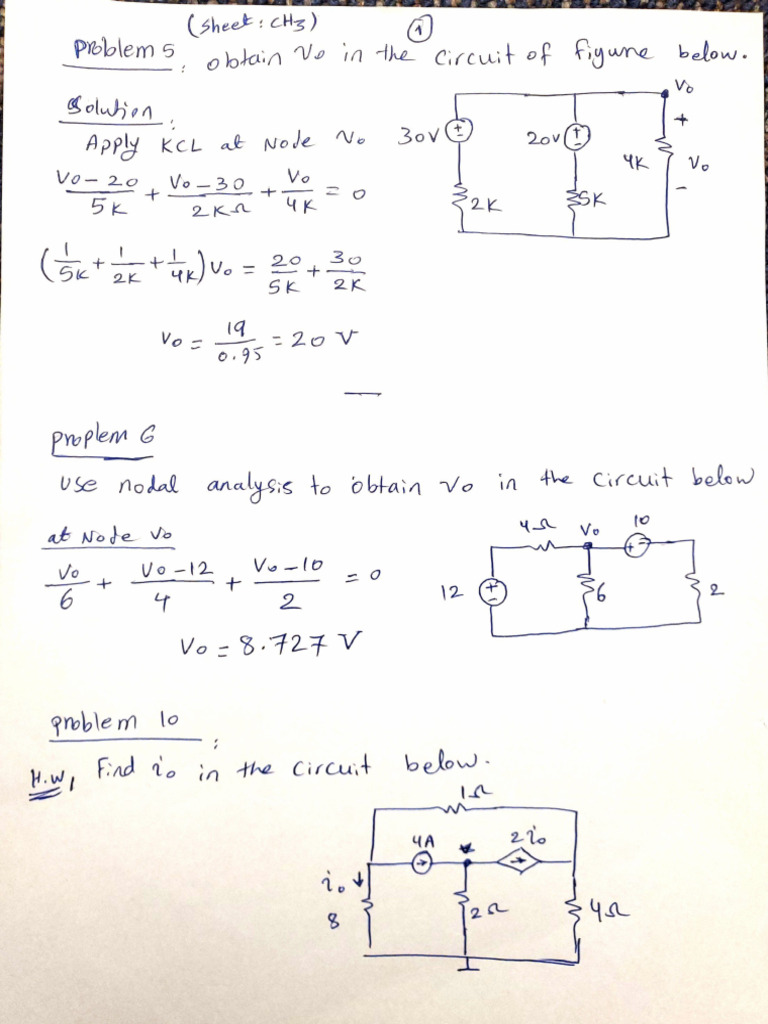 (sheet: CH3)
①
Problem 5: obtain Vo in the circuit of figure below.
Solution:
Apply KCL at Node Vo
(Vo-20)/5K + (Vo-30)/2KΩ + Vo/4K = 0
(1/5K + 1/2K + 1/4K) Vo = 20/5K + 30/2K
Vo = 19/0.95 = 20 V
30V
+
-
2K
20V
+
-
5K
4K
Vo
+
Vo
-
Problem 6
Use nodal analysis to obtain Vo in the circuit below
at Node Vo
Vo/6 + (Vo-12)/4 + (Vo-10)/2 = 0
Vo = 8.727 V
4Ω
Vo
10
+ -
12
+
-
6
2
problem 10:
H.W, Find io in the circuit below.
1Ω
4A
2io
io
8
2Ω
4Ω